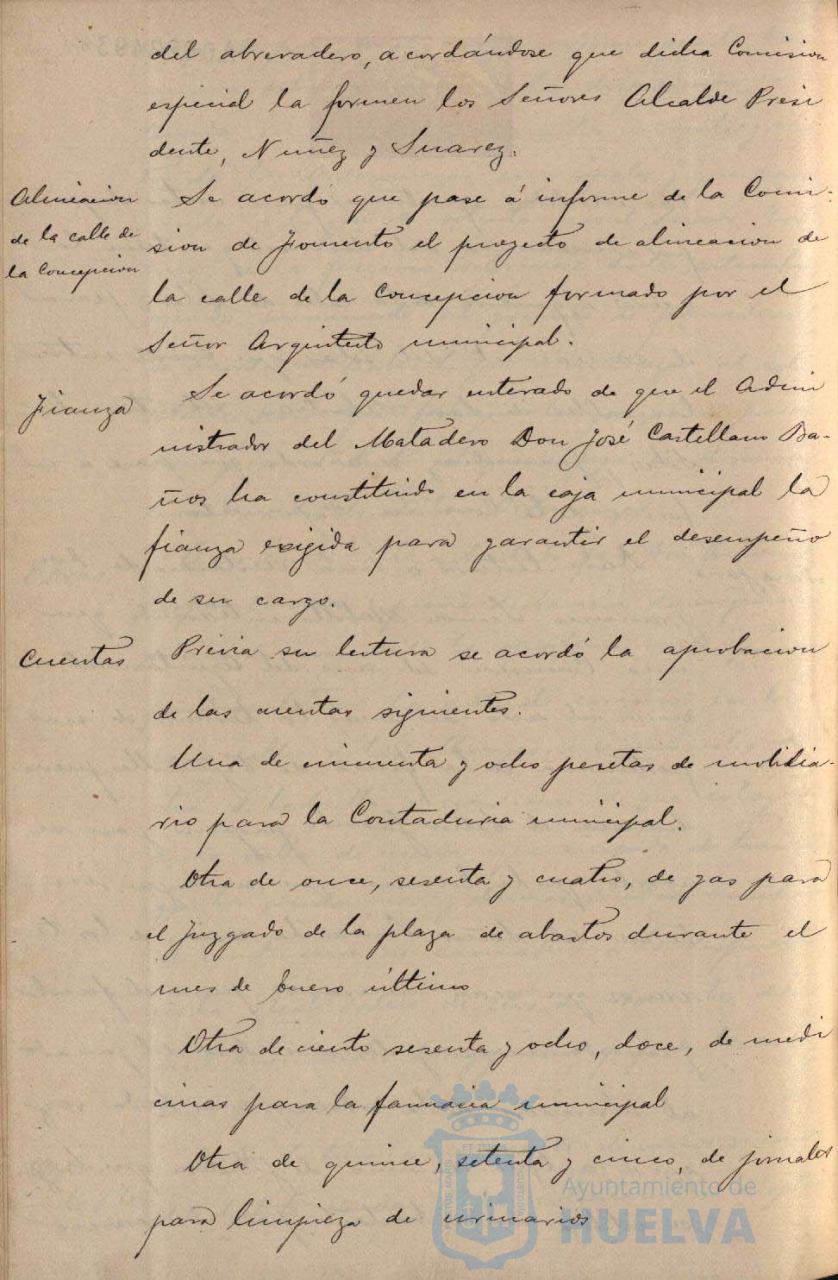 del abrevadero, acordándose que dicha Comision
especial la formen los Señores Alcalde Presi
dente, Nuñez y Suarez.
Alineacion
de la calle de
la Concepcion
Se acordó que pase á informe de la Comi-
sion de Fomento el proyecto de alineacion de
la calle de la Concepcion formado por el
Señor Arquitecto municipal.
Fianza
Se acordó quedar enterado de que el Admi
nistrador del Matadero Don José Castellano Ba-
ños ha constituido en la caja municipal la
fianza exigida para garantir el desempeño
de su cargo.
Cuentas
Prévia su lectura se acordó la aprobacion
de las cuentas siguientes.
Una de cincuenta y ocho pesetas de mobilia-
rio para la Contaduria municipal.
Otra de once, sesenta y cuatro, de gas para
el juzgado de la plaza de abastos durante el
mes de Enero último
Otra de ciento sesenta y ocho, doce, de medi
cinas para la farmacia municipal
Otra de quince, setenta y cinco, de jornales
para limpieza de urinarios
Ayuntamiento de
HUELVA